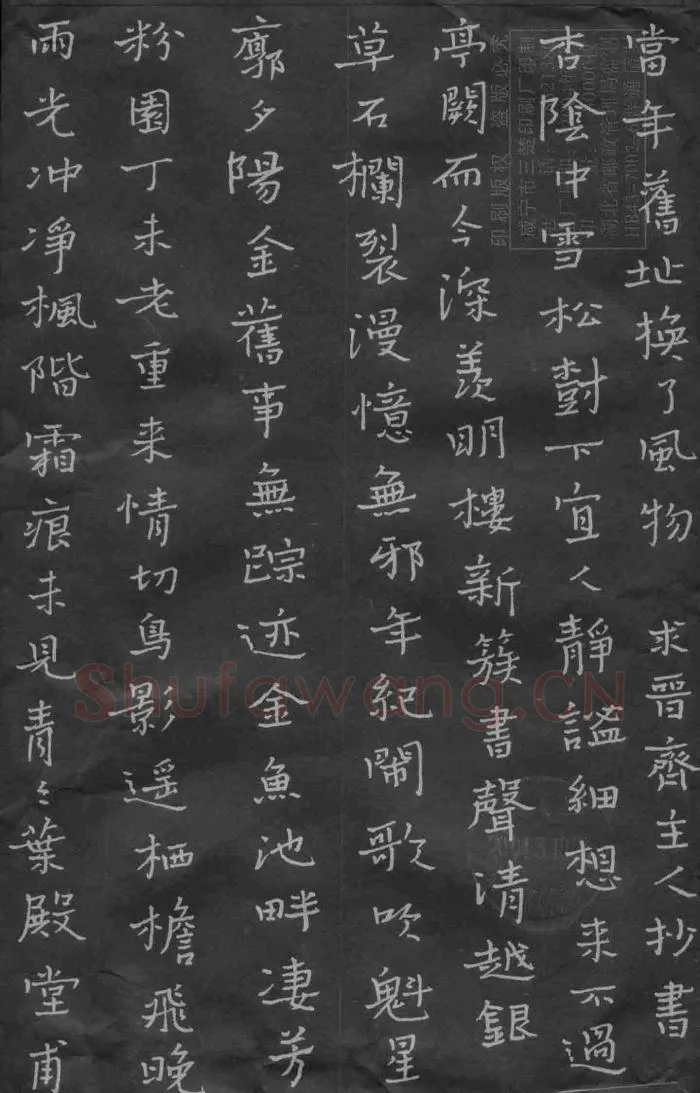 雨光冲淨楓階霜痕未見青々葉殿堂甫
粉園丁未老重来情切鳥影遥栖檐飛晚
廓夕陽金舊事無踪迹金魚池畔淒芳
草石欄裂漫憶無邪年紀鬧歌吹魁星
亭闕而今深羨明樓新簇書聲清越銀
杏陰中雪松樹下宜人靜謐細想来不過
當年舊址換了風物 求晋齊主人抄書
印刷版权 盗版必究
咸宁市三楚印刷厂印制
Shufawang.CN